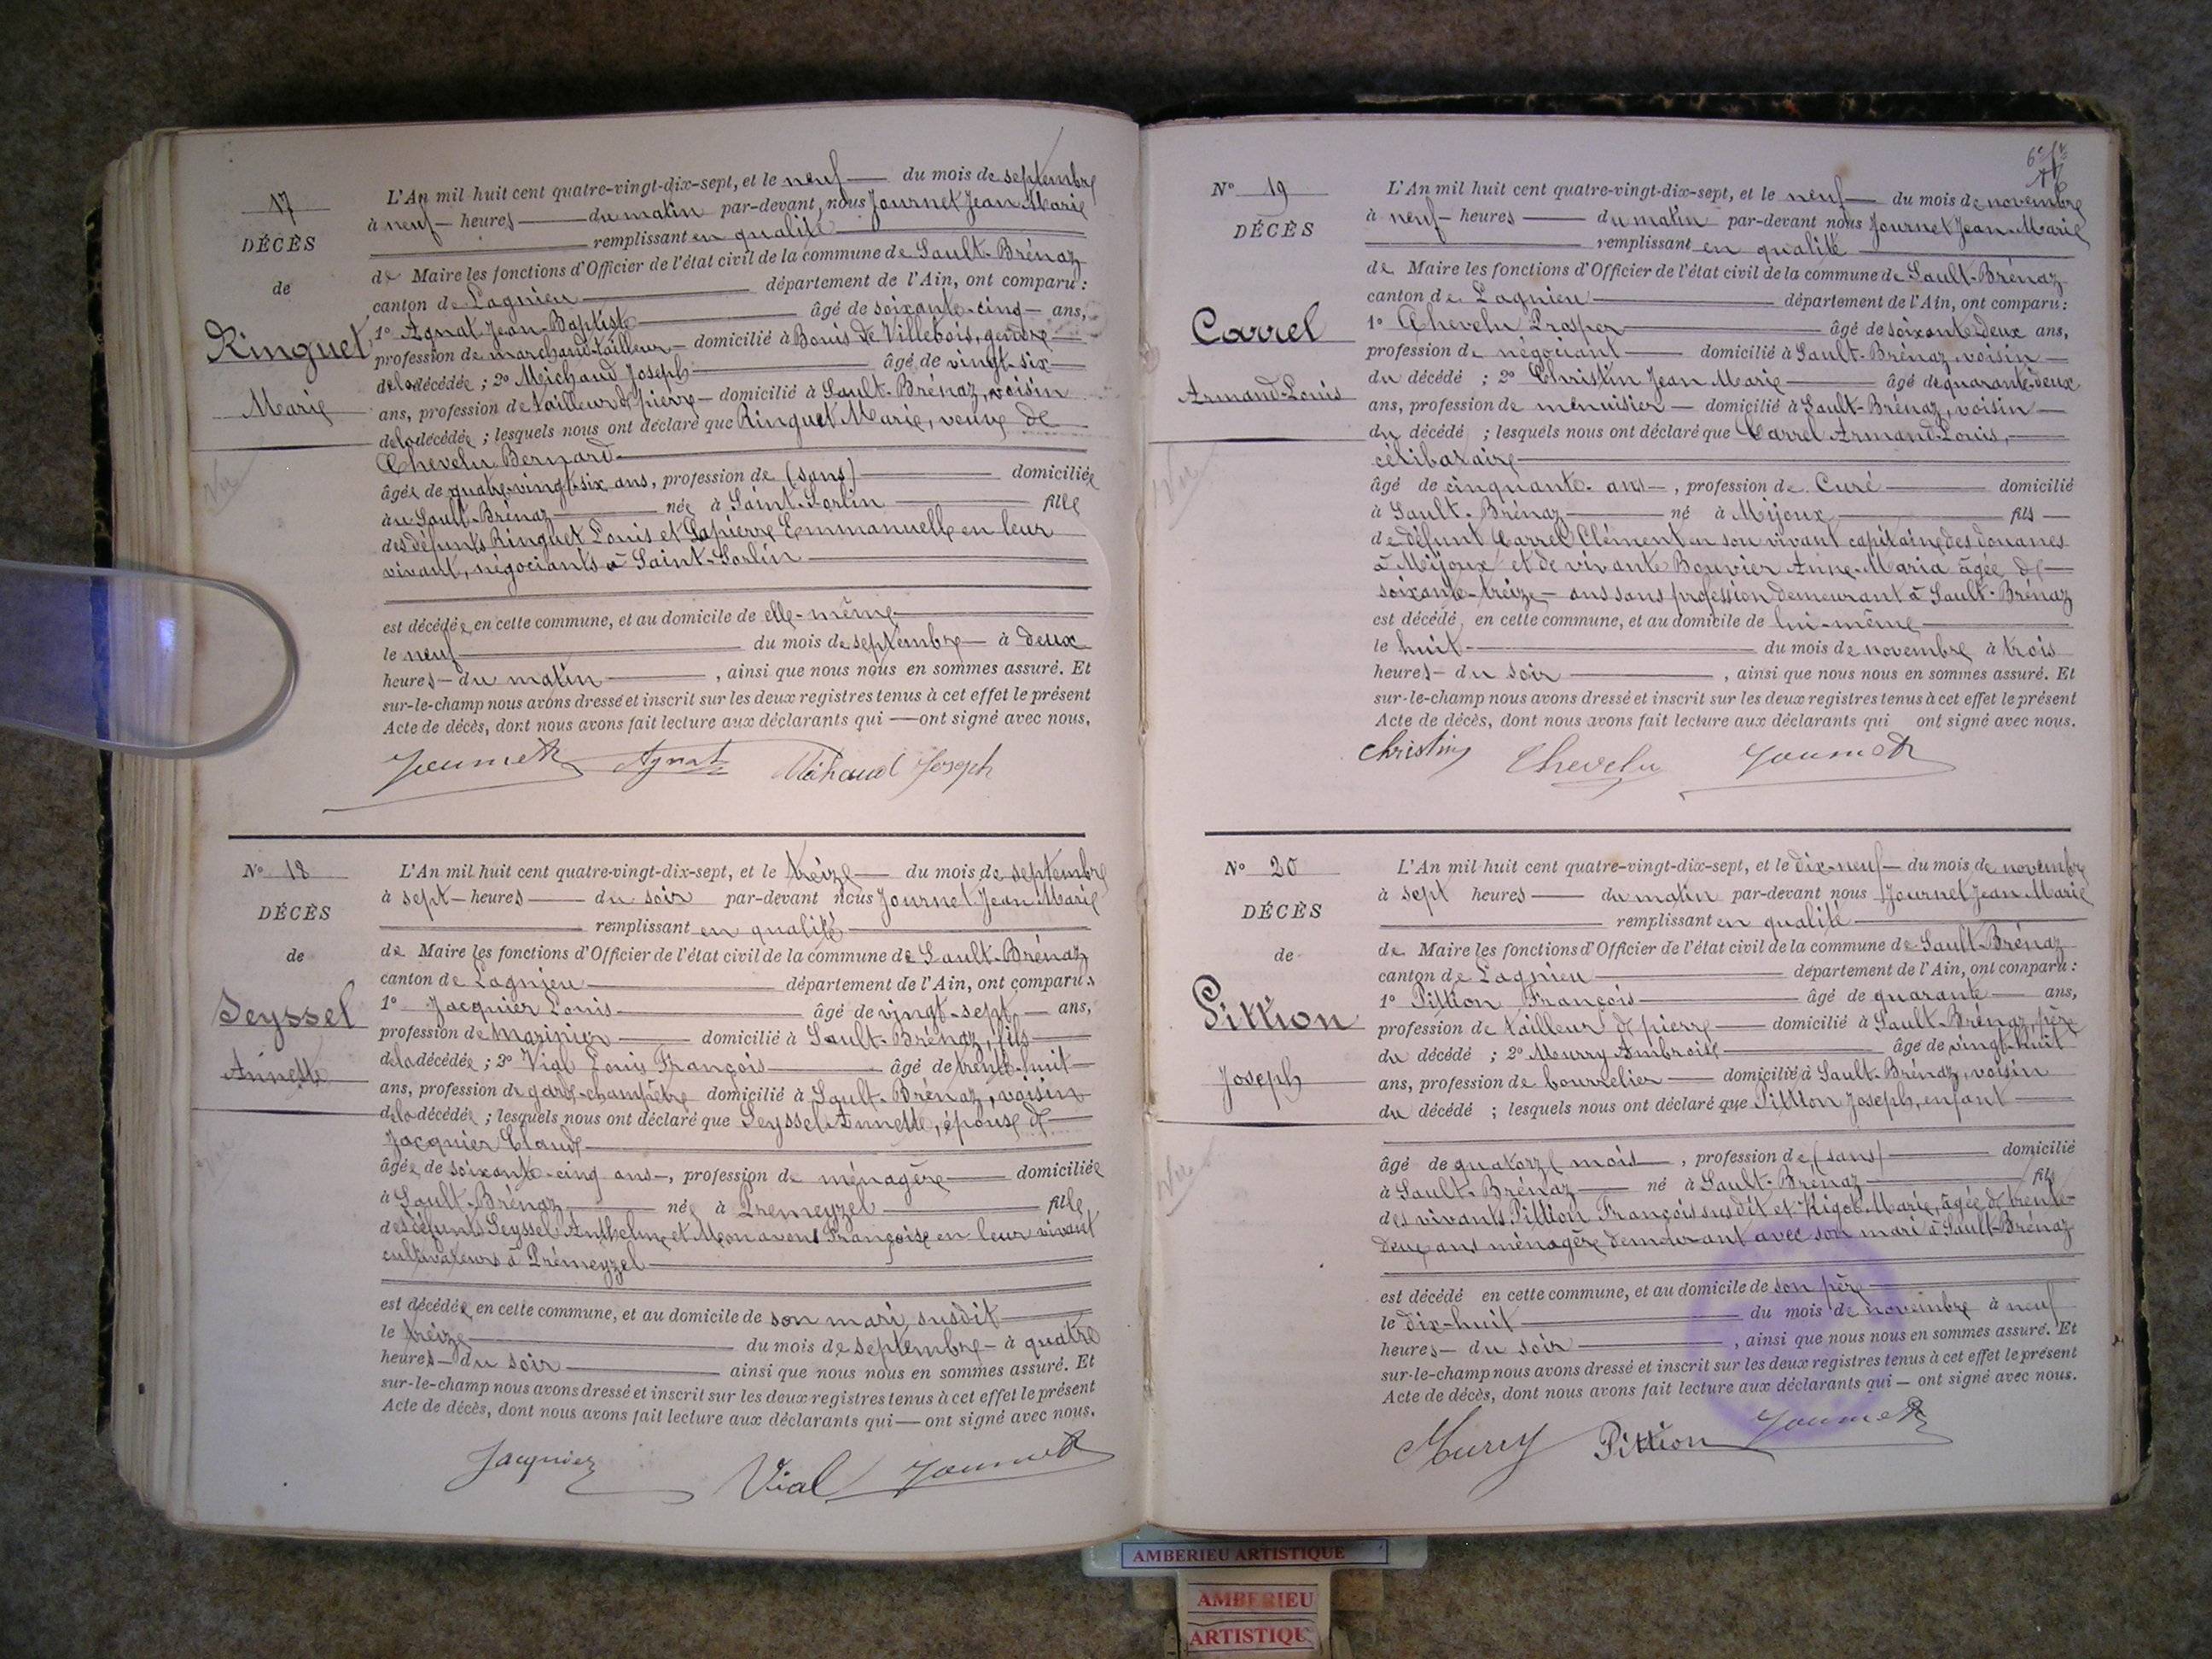 17
DÉCÈS
de
Ringuet
Marie
Vu
L'An mil huit cent quatre-vingt-dix-sept, et le neuf du mois de septembre
à neuf heures du matin par-devant nous Journet Jean Marie
remplissant en qualité
de Maire les fonctions d'Officier de l'état civil de la commune de Sault-Brénaz
canton de Lagnieu département de l'Ain, ont comparu :
1° Agnat Jean-Baptiste âgé de soixante-cinq ans,
profession de marchand-tailleur domicilié à Bouis de Villebois, gendre
de la décédée ; 2° Meichaud Joseph âgé de vingt-six
ans, profession de tailleur de pierre domicilié à Sault-Brénaz, voisin
de la décédée ; lesquels nous ont déclaré que Ringuet Marie, veuve de
Chevelu Bernard
âgée de quatre-vingt-six ans, profession de (sans) domiciliée
au Sault-Brénaz née à Saint-Sorlin fille
des défunts Ringuet Louis et Lapierre Emmanuelle en leur
vivant, négociants à Saint-Sorlin
est décédée, en cette commune, et au domicile de elle-même
le neuf du mois de septembre à deux
heures du matin, ainsi que nous nous en sommes assuré. Et
sur-le-champ nous avons dressé et inscrit sur les deux registres tenus à cet effet le présent
Acte de décès, dont nous avons fait lecture aux déclarants qui ont signé avec nous.
Journet Agnat Michaud Joseph
N° 18
DÉCÈS
de
Seyssel
Annette
Vu
L'An mil huit cent quatre-vingt-dix-sept, et le treize du mois de septembre
à sept heures du soir par-devant nous Journet Jean Marie
remplissant en qualité
de Maire les fonctions d'Officier de l'état civil de la commune de Sault-Brénaz
canton de Lagnieu département de l'Ain, ont comparu :
1° Jacquier Louis âgé de vingt-sept ans,
profession de marinier domicilié à Sault-Brénaz, fils
de la décédée ; 2° Vial Louis François âgé de trente-huit
ans, profession de garde-champêtre domicilié à Sault-Brénaz, voisin
de la décédée ; lesquels nous ont déclaré que Seyssel Annette, épouse de
Jacquier Claude
âgée de soixante-cinq ans, profession de ménagère domiciliée
à Sault-Brénaz née à Premeyzel fille
des défunts Seyssel Anthelme et Françoise en leur vivant
cultivateurs à Prémeyzel
est décédée, en cette commune, et au domicile de son mari susdit
le treize du mois de septembre à quatre
heures du soir ainsi que nous nous en sommes assuré. Et
sur-le-champ nous avons dressé et inscrit sur les deux registres tenus à cet effet le présent
Acte de décès, dont nous avons fait lecture aux déclarants qui ont signé avec nous.
Jacquier Vial Journet
N° 19
DÉCÈS
Carrel
Armand-Louis
Vu
L'An mil huit cent quatre-vingt-dix-sept, et le neuf du mois de novembre
à neuf heures du matin par-devant nous Journet Jean-Marie
remplissant en qualité
de Maire les fonctions d'Officier de l'état civil de la commune de Sault-Brénaz
canton de Lagnieu département de l'Ain, ont comparu :
1° Chevelu Prosper âgé de soixante-deux ans,
profession de négociant domicilié à Sault-Brénaz, voisin
du décédé ; 2° Christin Jean Marie âgé de quarante-deux
ans, profession de menuisier domicilié à Sault-Brénaz, voisin
du décédé ; lesquels nous ont déclaré que Carrel Armand-Louis,
célibataire
âgé de cinquante ans, profession de Curé domicilié
à Sault-Brénaz né à Mijoux fils
de défunt Carrel Clément en son vivant capitaine des douanes
à Mijoux et de vivante Bouvier Anne-Maria âgée de
soixante-treize ans sans profession demeurant à Sault-Brénaz
est décédé, en cette commune, et au domicile de lui-même
le huit du mois de novembre à trois
heures du soir, ainsi que nous nous en sommes assuré. Et
sur-le-champ nous avons dressé et inscrit sur les deux registres tenus à cet effet le présent
Acte de décès, dont nous avons fait lecture aux déclarants qui ont signé avec nous.
Christin Chevelu Journet
N° 20
DÉCÈS
de
Pittion
Joseph
Vu
L'An mil huit cent quatre-vingt-dix-sept, et le dix-neuf du mois de novembre
à sept heures du matin par-devant nous Journet Jean Marie
remplissant en qualité
de Maire les fonctions d'Officier de l'état civil de la commune de Sault-Brénaz
canton de Lagnieu département de l'Ain, ont comparu :
1° Pittion François âgé de quarante ans,
profession de tailleur de pierre domicilié à Sault-Brénaz, père
du décédé ; 2° Meurry Ambroise âgé de vingt-huit
ans, profession de bourrelier domicilié à Sault-Brénaz, voisin
du décédé ; lesquels nous ont déclaré que Pittion Joseph, enfant
âgé de quatorze mois, profession de (sans) domicilié
à Sault-Brénaz né à Sault-Brénaz fils
des vivants Pittion François susdit et Rigot Marie, âgée de trente-
deux ans ménagère demeurant avec son mari à Sault-Brénaz
est décédé en cette commune, et au domicile de son père
le dix-huit du mois de novembre à neuf
heures du soir, ainsi que nous nous en sommes assuré. Et
sur-le-champ nous avons dressé et inscrit sur les deux registres tenus à cet effet le présent
Acte de décès, dont nous avons fait lecture aux déclarants qui ont signé avec nous.
Murry Pittion Journet
AMBERIEU ARTISTIQUE
AMBERIEU
ARTISTIQU